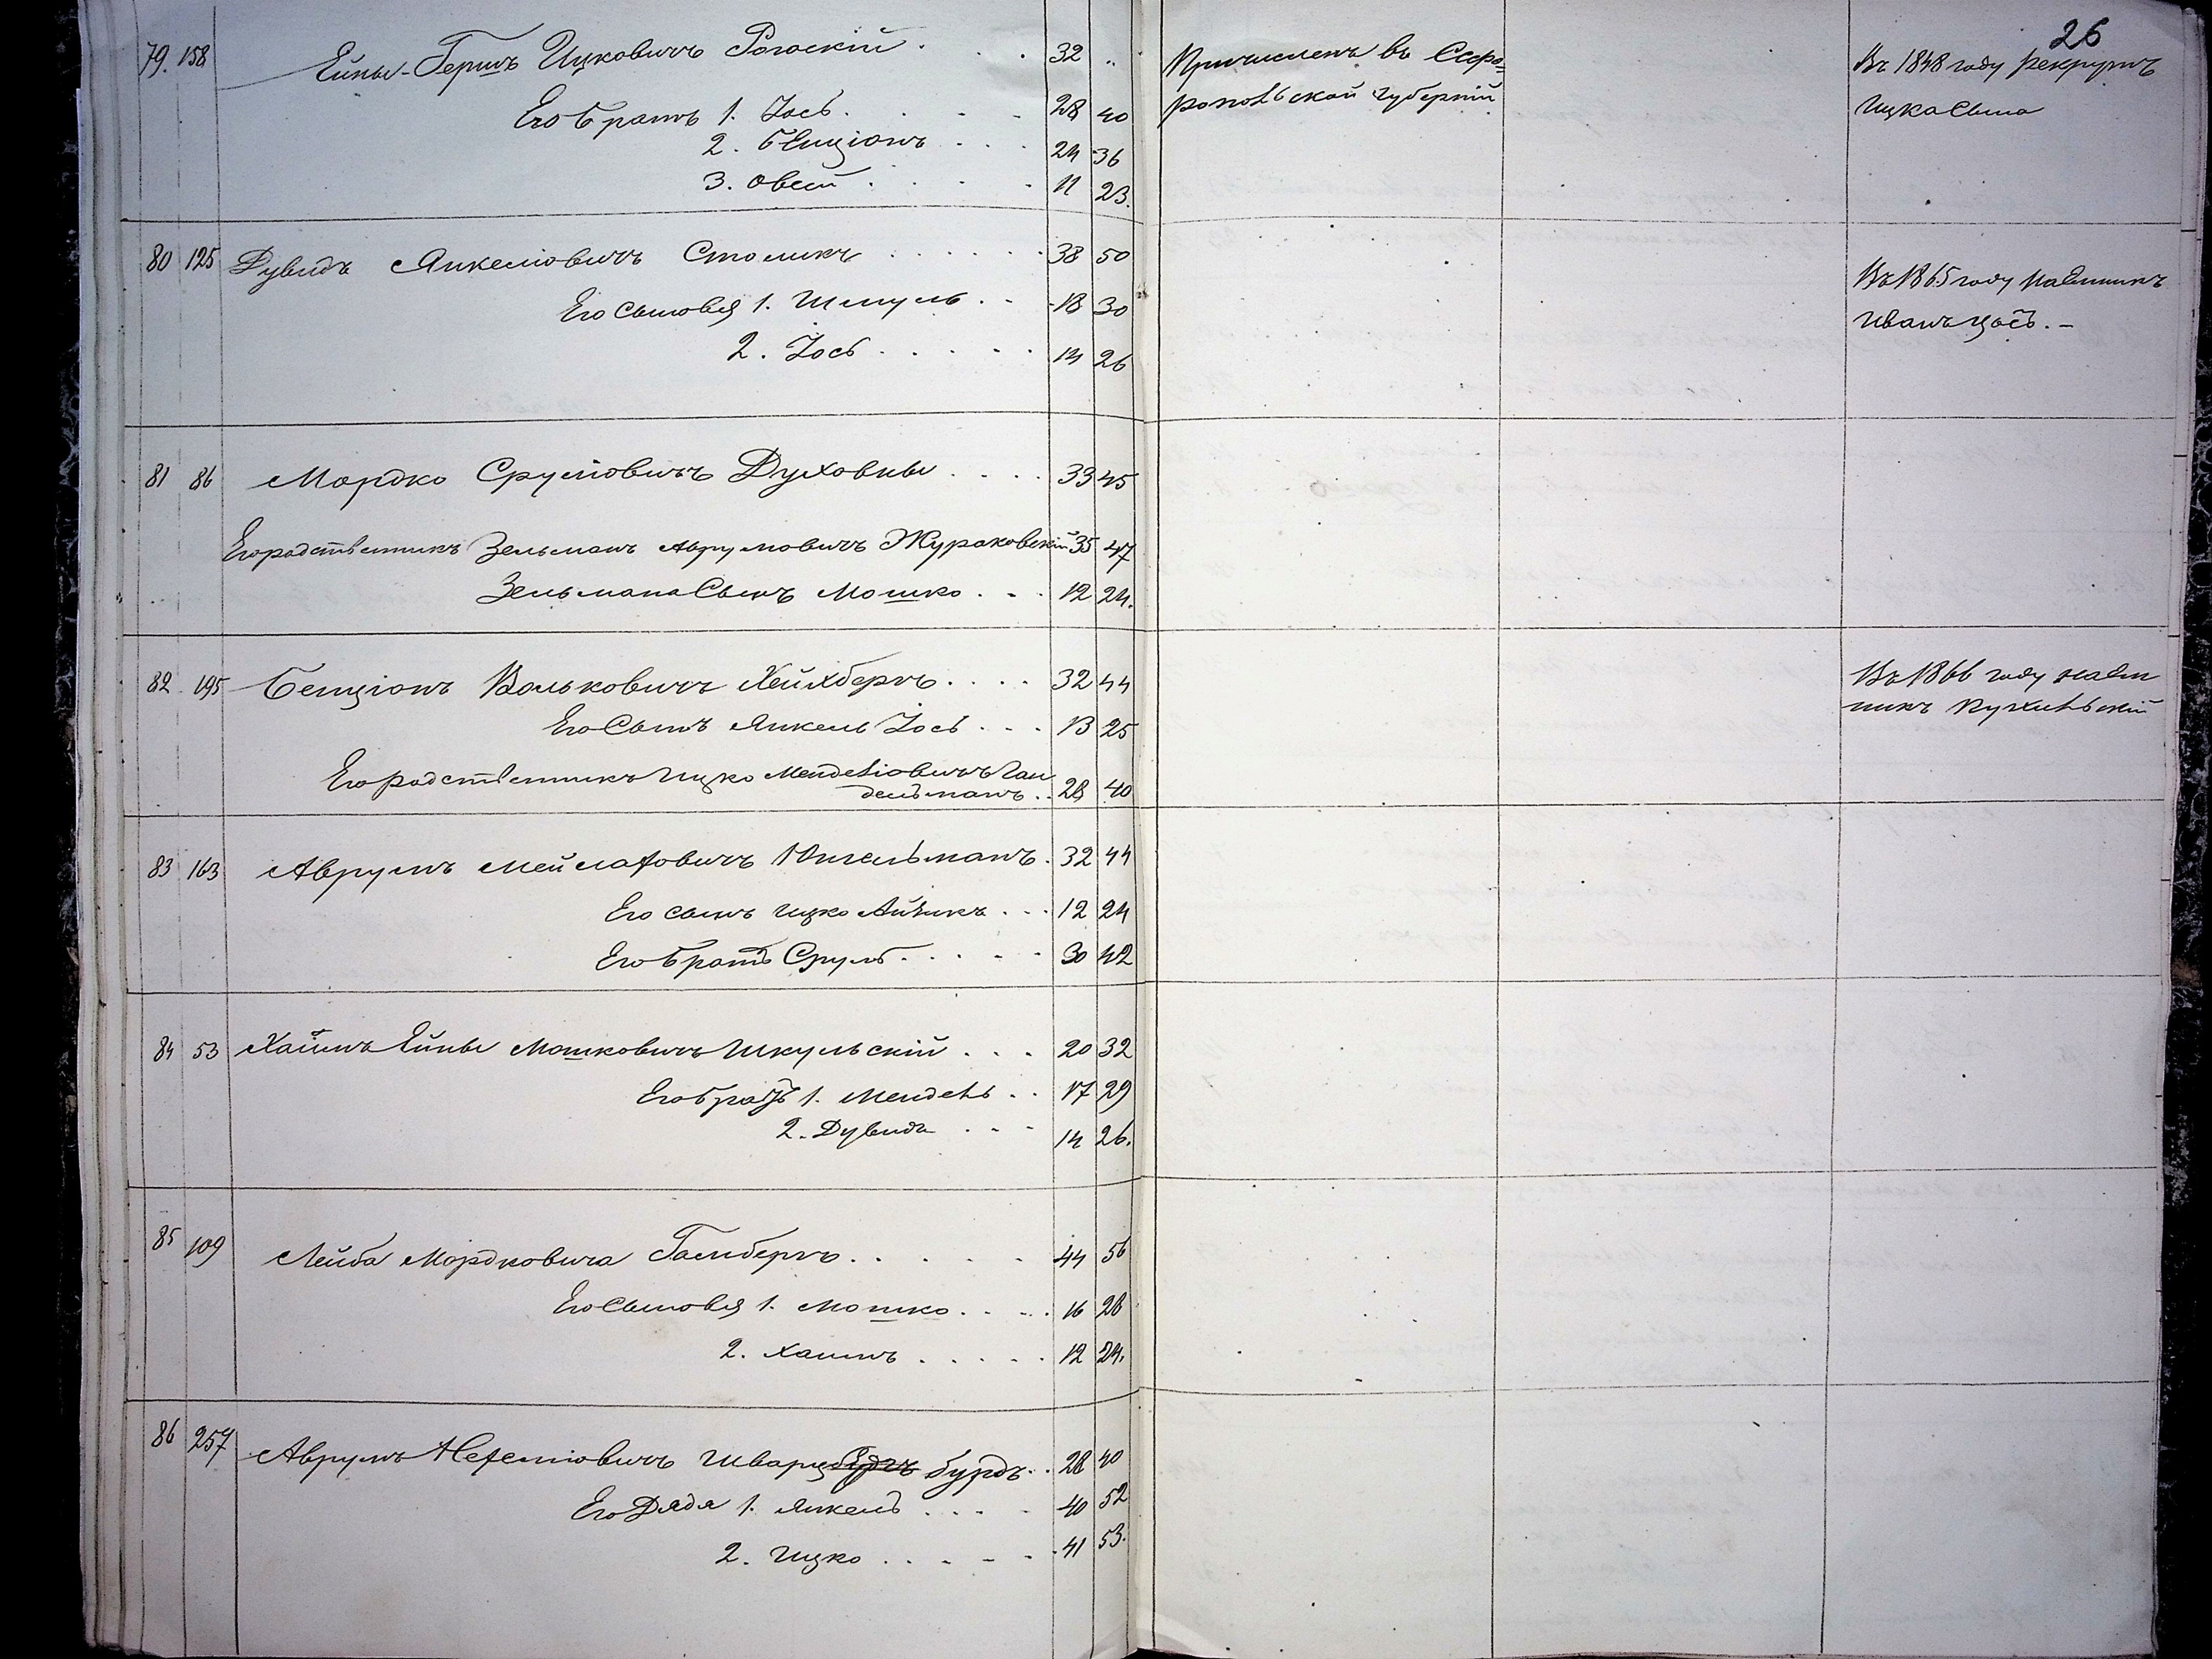 26
79. 158 Ейны-Гершъ Ицковичъ Рогаскій . . . 32 „ Причисленъ въ Ставро= Въ 1848 году рекрутъ
Его братъ 1. Іось . . . . 28 40 ропольской губерніи Ицка сына
2. Бенціонъ . . . 24 36
3. Овсей . . . . 11 23.
80 125 Дувидъ Янкеліовичъ Столикъ . . . . . . 38 50 Въ 1865 году наемникъ
Его сыновья 1. Шмуль . . 18 30 Иванъ
2. Іось . . . . . 14 26
81 86 Мордко Сруліовичъ Духовны . . . . 33 45
Его родственникъ Зельманъ Аврумовичъ Жураковскій 35 47
Зельмана сынъ Мошко . . . 12 24.
82 195 Бенціонъ Вольковичъ Хейхбергъ . . . . 32 44 Въ 1866 году наем
Его сынъ Янкель Іось . . . 13 25 никъ
Его родственникъ Ицко Менделіовичъ Ган
дельманъ . . 28 40
83 163 Аврумъ Мейлаховичъ Юнгельманъ . 32 44
Его сынъ Ицко Айзикъ . . . 12 24
Его братъ Сруль . . . . . 30 42
84 53 Хаимъ Ейны Мошковичъ Шкульскій . . . 20 32
Его братья 1. Мендель . . 17 29
2. Дувидъ . . . 14 26.
85 109 Лейба Мордковича Гамбергъ . . . . . 44 56
Его сыновья 1. Мошко . . . . 16 28
2. Хаимъ . . . . . 12 24.
86 257 Аврумъ Нехеміовичъ Шварцбурдъ . . 28 40
Его дядя 1. Янкель . . . . 40 52
2. Ицко . . . . . 41 53.